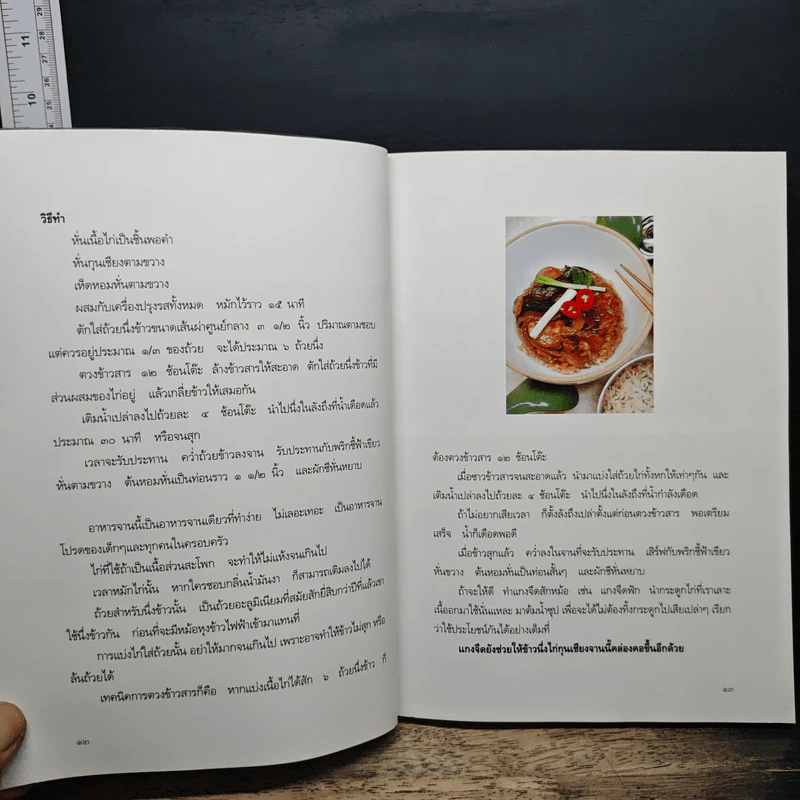 11
10
29
28
27
26
25
24
วิธีทำ
หั่นเนื้อไก่เป็นชิ้นพอคำ
หั่นกุนเชียงตามขวาง
เห็ดหอมหั่นตามขวาง
ผสมกับเครื่องปรุงรสทั้งหมด หมักไว้ราว ๑๕ นาที
ตักใส่ถ้วยนึ่งข้าวขนาดเส้นผ่าศูนย์กลาง ๓ ๑/๒ นิ้ว ปริมาณตามชอบ
แต่ควรอยู่ประมาณ ๑/๓ ของถ้วย จะได้ประมาณ ๖ ถ้วยนึ่ง
ตวงข้าวสาร ๑๒ ช้อนโต๊ะ ล้างข้าวสารให้สะอาด ตักใส่ถ้วยนึ่งข้าวที่มี
ส่วนผสมของไก่อยู่ แล้วเกลี่ยข้าวให้เสมอกัน
เติมน้ำเปล่าลงไปถ้วยละ ๔ ช้อนโต๊ะ นำไปนึ่งในลังถึงที่น้ำเดือดแล้ว
ประมาณ ๓๐ นาที หรือจนสุก
เวลาจะรับประทาน คว่ำถ้วยข้าวลงจาน รับประทานกับพริกชี้ฟ้าเขียว
หั่นตามขวาง ต้นหอมหั่นเป็นท่อนราว ๑ ๑/๒ นิ้ว และผักชีหั่นหยาบ
อาหารจานนี้เป็นอาหารจานเดียวที่ทำง่าย ไม่เลอะเทอะ เป็นอาหารจาน
โปรดของเด็กๆและทุกคนในครอบครัว
ไก่ที่ใช้ถ้าเป็นเนื้อส่วนสะโพก จะทำให้ไม่แห้งจนเกินไป
เวลาหมักไก่นั้น หากใครชอบกลิ่นน้ำมันงา ก็สามารถเติมลงไปได้
ถ้วยสำหรับนึ่งข้าวนั้น เป็นถ้วยอะลูมิเนียมที่สมัยสักยี่สิบกว่าปีที่แล้วเขา
ใช้นึ่งข้าวกัน ก่อนที่จะมีหม้อหุงข้าวไฟฟ้าเข้ามาแทนที่
การแบ่งไก่ใส่ถ้วยนั้น อย่าให้มากจนเกินไป เพราะอาจทำให้ข้าวไม่สุก หรือ
ล้นถ้วยได้
เทคนิคการตวงข้าวสารก็คือ หากแบ่งเนื้อไก่ได้สัก ๖ ถ้วยนึ่งข้าว ก็
๑๒
ต้องตวงข้าวสาร ๑๒ ช้อนโต๊ะ
เมื่อซาวข้าวสารจนสะอาดแล้ว นำมาแบ่งใส่ถ้วยไก่ทั้งหกให้เท่าๆกัน และ
เติมน้ำเปล่าลงไปถ้วยละ ๔ ช้อนโต๊ะ นำไปนึ่งในลังถึงที่น้ำกำลังเดือด
ถ้าไม่อยากเสียเวลา ก็ตั้งลังถึงเปล่าตั้งแต่ก่อนตวงข้าวสาร พอเตรียม
เสร็จ น้ำก็เดือดพอดี
เมื่อข้าวสุกแล้ว คว่ำลงในจานที่จะรับประทาน เสิร์ฟกับพริกชี้ฟ้าเขียว
หั่นขวาง ต้นหอมหั่นเป็นท่อนสั้นๆ และผักชีหั่นหยาบ
ถ้าจะให้ดี ทำแกงจืดสักหม้อ เช่น แกงจืดฟัก นำกระดูกไก่ที่เราเลาะ
เนื้อออกมาใช้นั่นแหละ มาต้มน้ำซุป เพื่อจะได้ไม่ต้องทิ้งกระดูกไปเสียเปล่าๆ เรียก
ว่าใช้ประโยชน์กันได้อย่างเต็มที่
แกงจืดยังช่วยให้ข้าวนึ่งไก่กุนเชียงจานนี้คล่องคอขึ้นอีกด้วย
๑๓